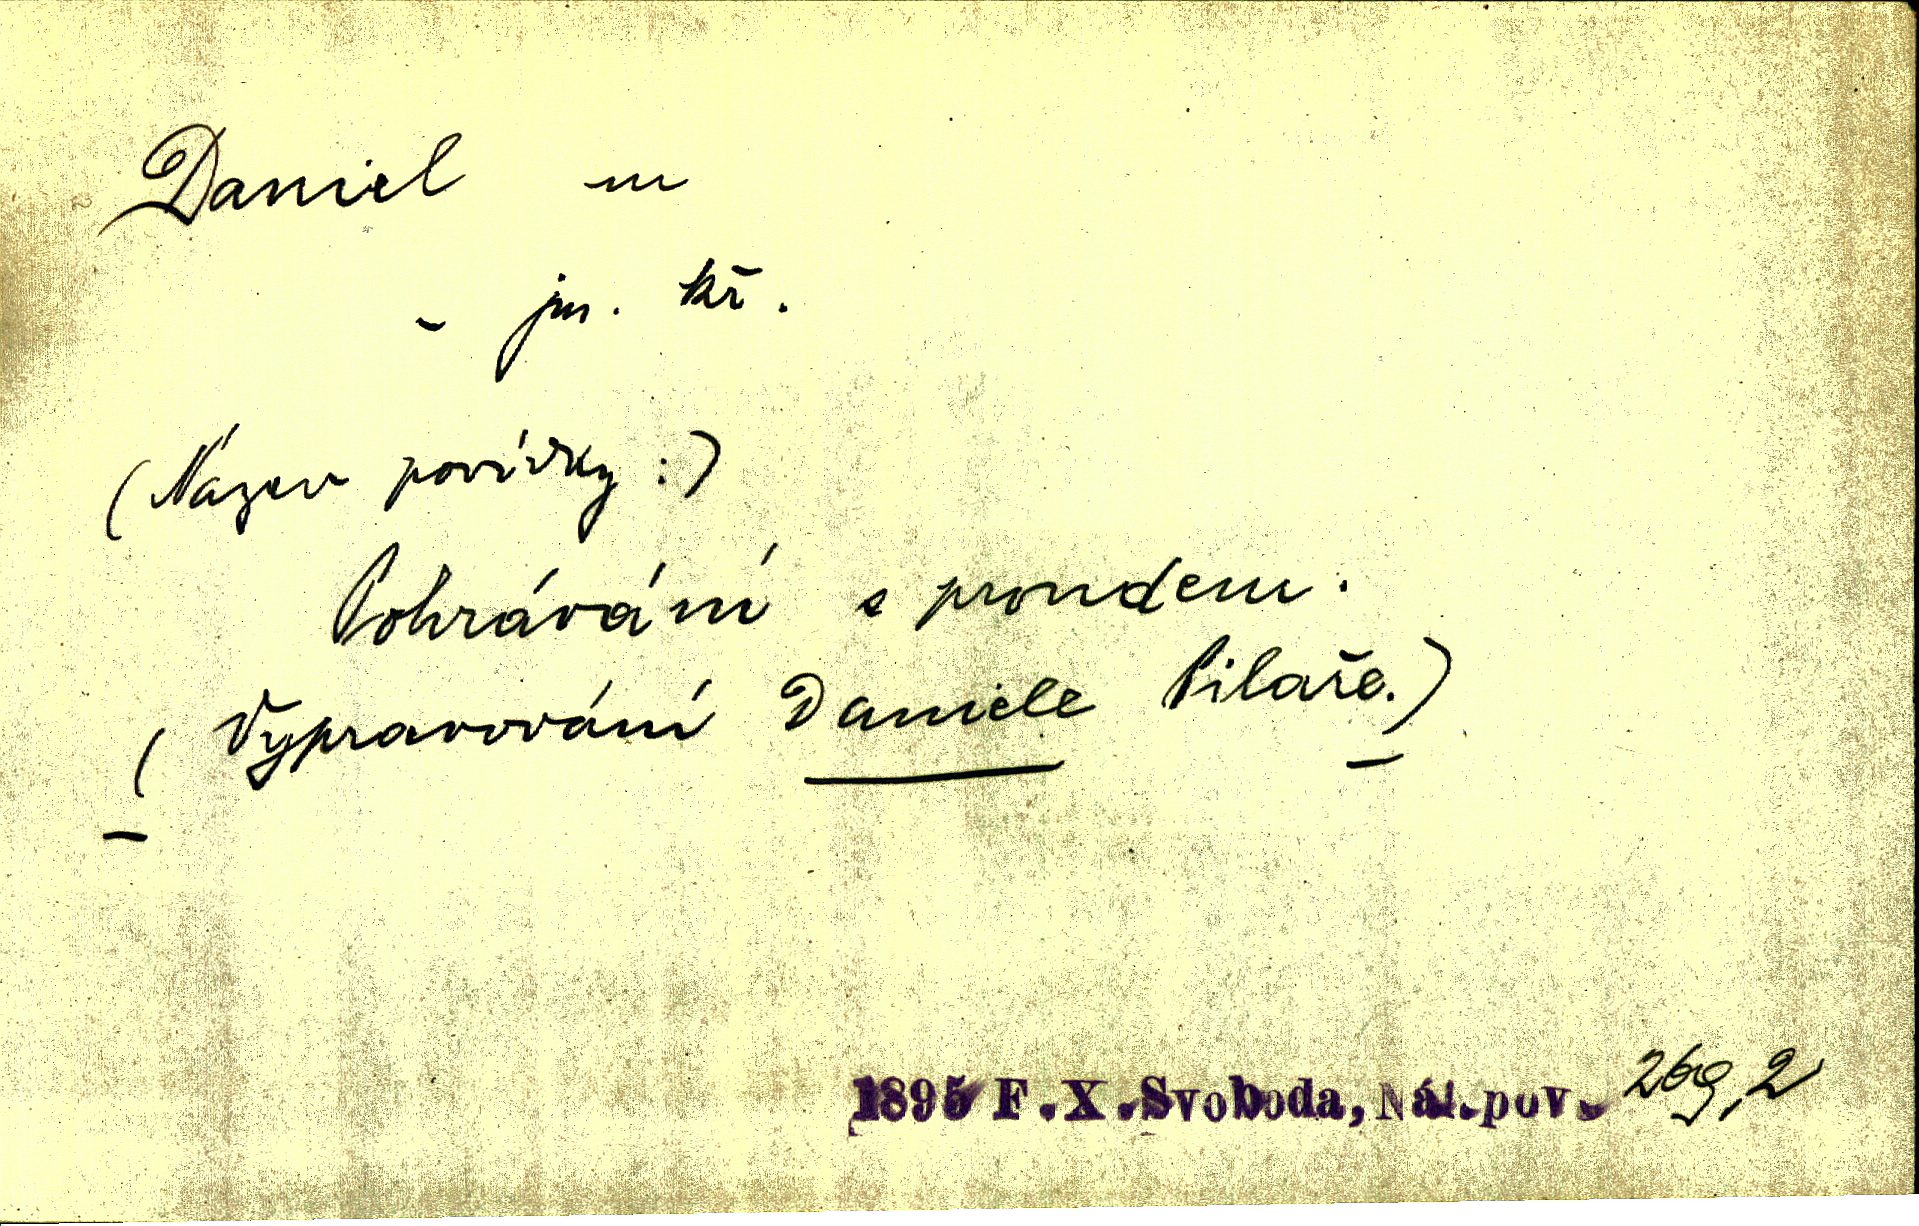 Daniel m
- jm. kř.
(Název povídky:)
Pohrávání s proudem.
(Vypravování Daniele Pilaře.)
1895 F.X.Svoboda, Nál.pov. 269,2